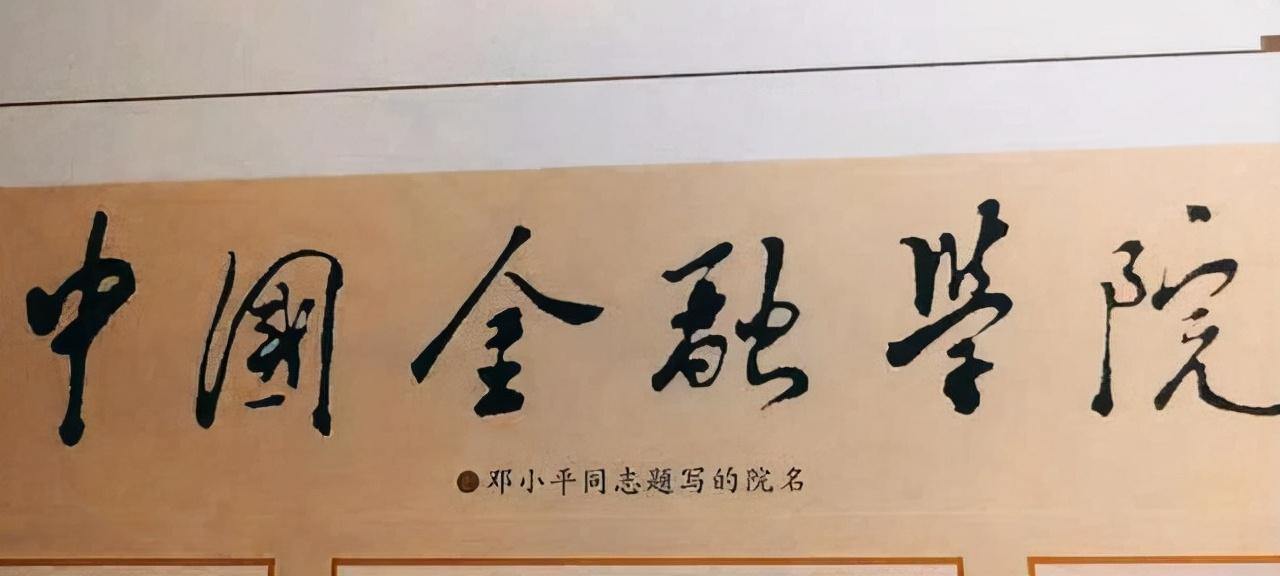 中國金融學院
邓小平同志题写的院名